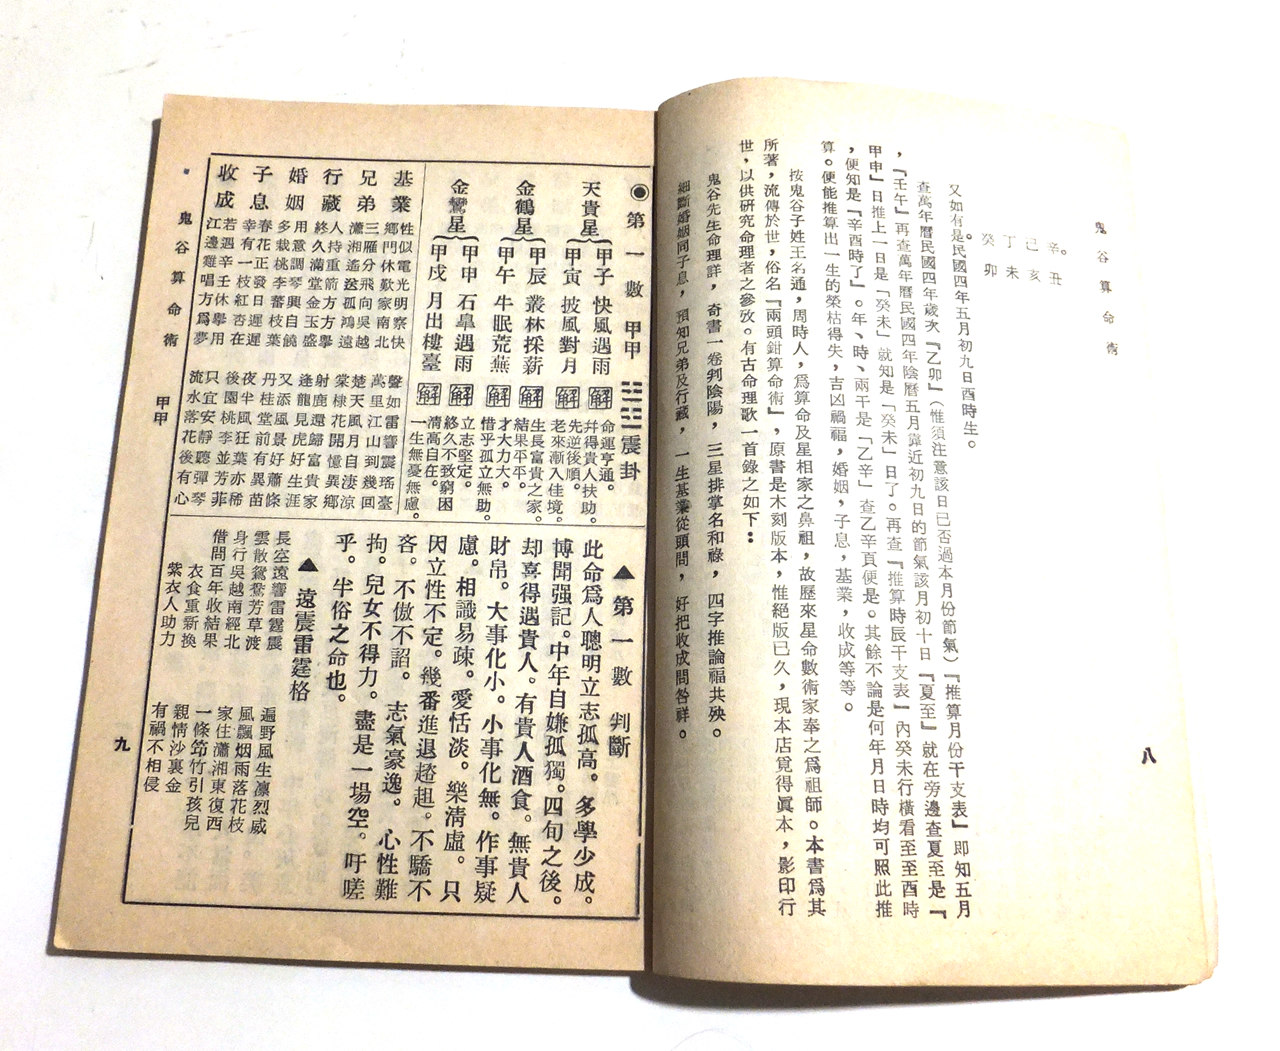 鬼谷算命術
八
癸丁己辛。
卯未亥丑
又如有是民國四年五月初九日酉時生。
查萬年曆民國四年歲次『乙卯』(惟須注意該日已否過本月份節氣)『推算月份干支表』即知五月
,『壬午』再查萬年曆民國四年陰曆五月靠近初九日的節氣該月初十日『夏至』就在旁邊查夏至是『
甲申』日推上一日是『癸未』就知是『癸未』日了。再查『推算時辰干支表』內癸未行橫看至至酉時
,便知是『辛酉時了』。年、時、兩干是『乙辛』查乙辛頁便是。其餘不論是何年月日時均可照此推
算。便能推算出一生的榮枯得失,吉凶禍福,婚姻,子息,基業,收成等等。
按鬼谷子姓王名通,周時人,爲算命及星相家之鼻祖,故歷來星命數術家奉之爲祖師。本書爲其
所著,流傳於世,俗名『兩頭鉗算命術』,原書是木刻版本,惟絕版已久,現本店覓得眞本,影印行
世,以供研究命理者之參攷。有古命理歌一首錄之如下:
鬼谷先生命理詳,奇書一卷判陰陽,三星排掌名和祿,四字推論福共殃。
細斷婚姻同子息,預知兄弟及行藏,一生基業從頭問,好把收成問答祥。
◉第一數 甲甲 ䷲震卦
天貴星
甲子 快風遇雨 解 命運亨通。幷得貴人扶助。
甲寅 披風對月 解 先逆後順。老來漸入佳境。
金鶴星
甲辰 叢林採薪 解 生長富貴之家。結果平平。
甲午 牛眠荒蕪 解 才大力大。惜乎孤立無助。
金鸞星
甲申 石臯遇雨 解 立志堅定。終久不致窮困
甲戌 月出樓臺 解 清高自在。一生無憂無慮。
基業 性似電光明察快 聲如雷響震瑤臺
鄉門休歎家南北 萬里江山到幾回
兄弟 三雁分飛向吳越 楚天風月自淒涼
瀟湘遙送孤鴻遠 棠棣花開憶異鄉
行藏 人持重箭方方擧 射鹿還歸富貴家
終久滿堂金玉盛 逢龍見虎好生涯
婚姻 用意調琴興自饒 又添風景好蕭條
多栽桃李蕃枝葉 丹桂堂前有異苗
子息 春花正發日遲遲 夜半風狂葉亦稀
幸有一枝紅杏在 後園桃李並芳菲
收成 若遇辛壬休擧用 只宜安靜聽彈琴
江邊雞唱方爲夢 流水落花後有心
▲第一數 判斷
此命爲人聰明立志孤高。多學少成。
博聞强記。中年自嫌孤獨。四句之後。
却喜得遇貴人。有貴人酒食。無貴人
財帛。大事化小。小事化無。作事疑
慮。相識易疎。愛恬淡。樂清虛。只
因立性不定。幾番進退趑趄。不驕不
吝。不傲不諂。志氣豪逸。心性難
拘。兒女不得力。盡是一場空。吁嗟
乎。半俗之命也。
▲遠震雷霆格
長空遠響雷霆震 遍野風生凛烈威
雲散鴛鴦芳草渡 風飄烟雨落花枝
身行吳越南經北 家住瀟湘東復西
借問百年收結果 一條笻竹引孩兒
衣食重新換 親情沙裏金
紫衣人助力 有禍不相侵
鬼谷算命術 甲甲
九